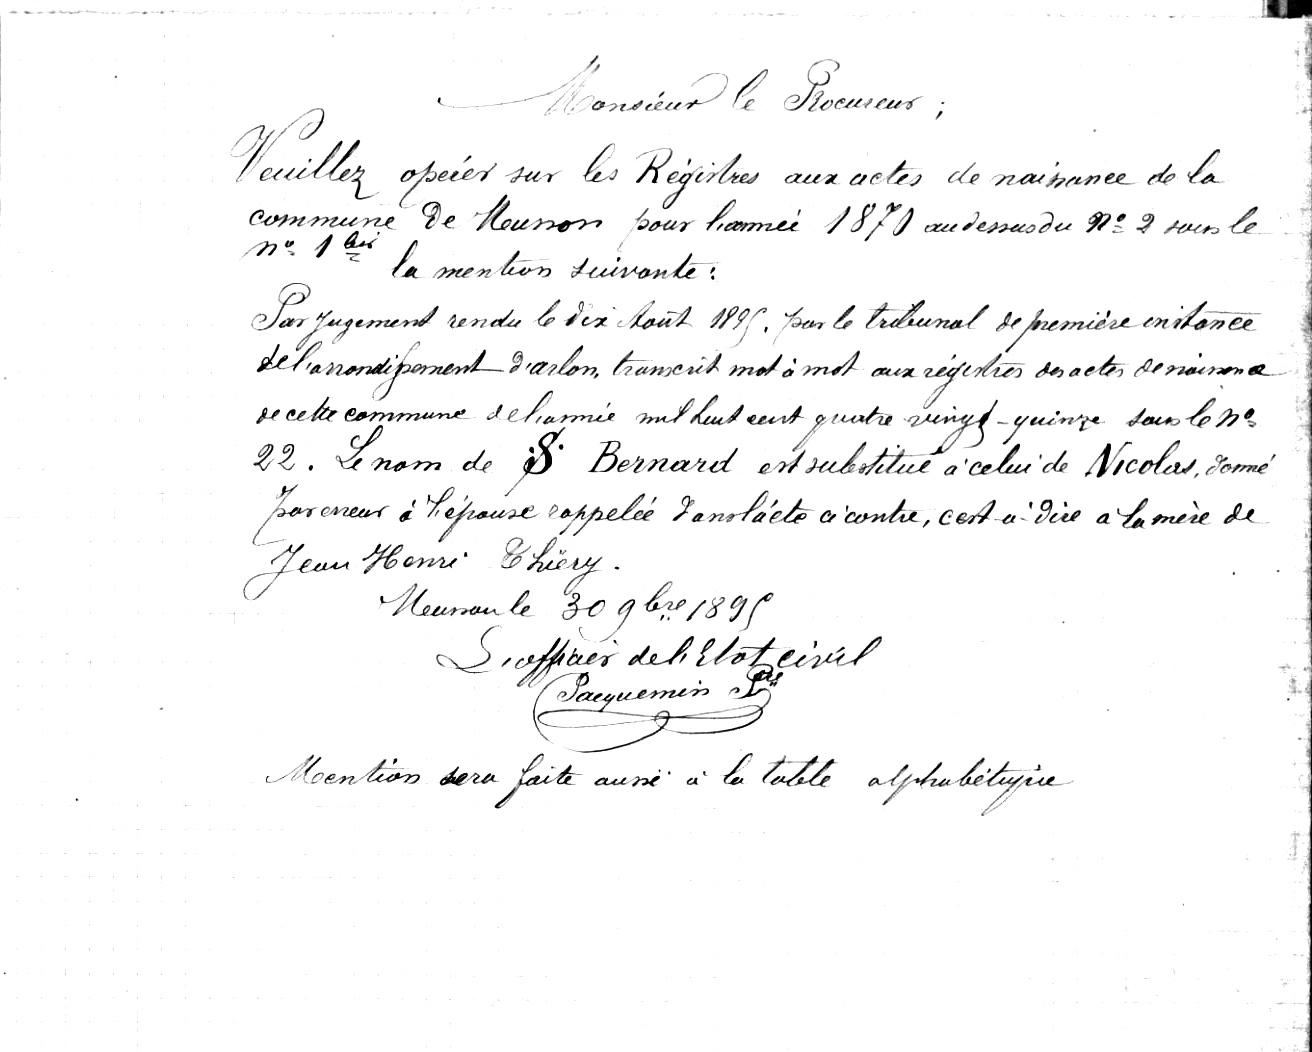 Monsieur le Procureur ;
Veuillez opérer sur les Régistres aux actes de naissance de la
commune de Musson pour l'année 1870 au dessus du Nº 2 sous le
nº 1 bis
la mention suivante :
Par jugement rendu le dix Août 1895, par le tribunal de première instance
de l'arrondissement d'arlon, transcrit mot à mot aux régistres des actes de naissance
de cette commune de l'année mil huit cent quatre vingt-quinze sous le nº
22. Le nom de St Bernard est substitué à celui de Nicolas, donné
par erreur à l'épouse rappelée dans l'acte ci contre, c'est-à-dire à la mère de
Jean Henri Thiéry.
Musson le 30 9bre 1895
L'officier de l'Etat civil
Jacquemin
Mention sera faite aussi à la table alphabétique